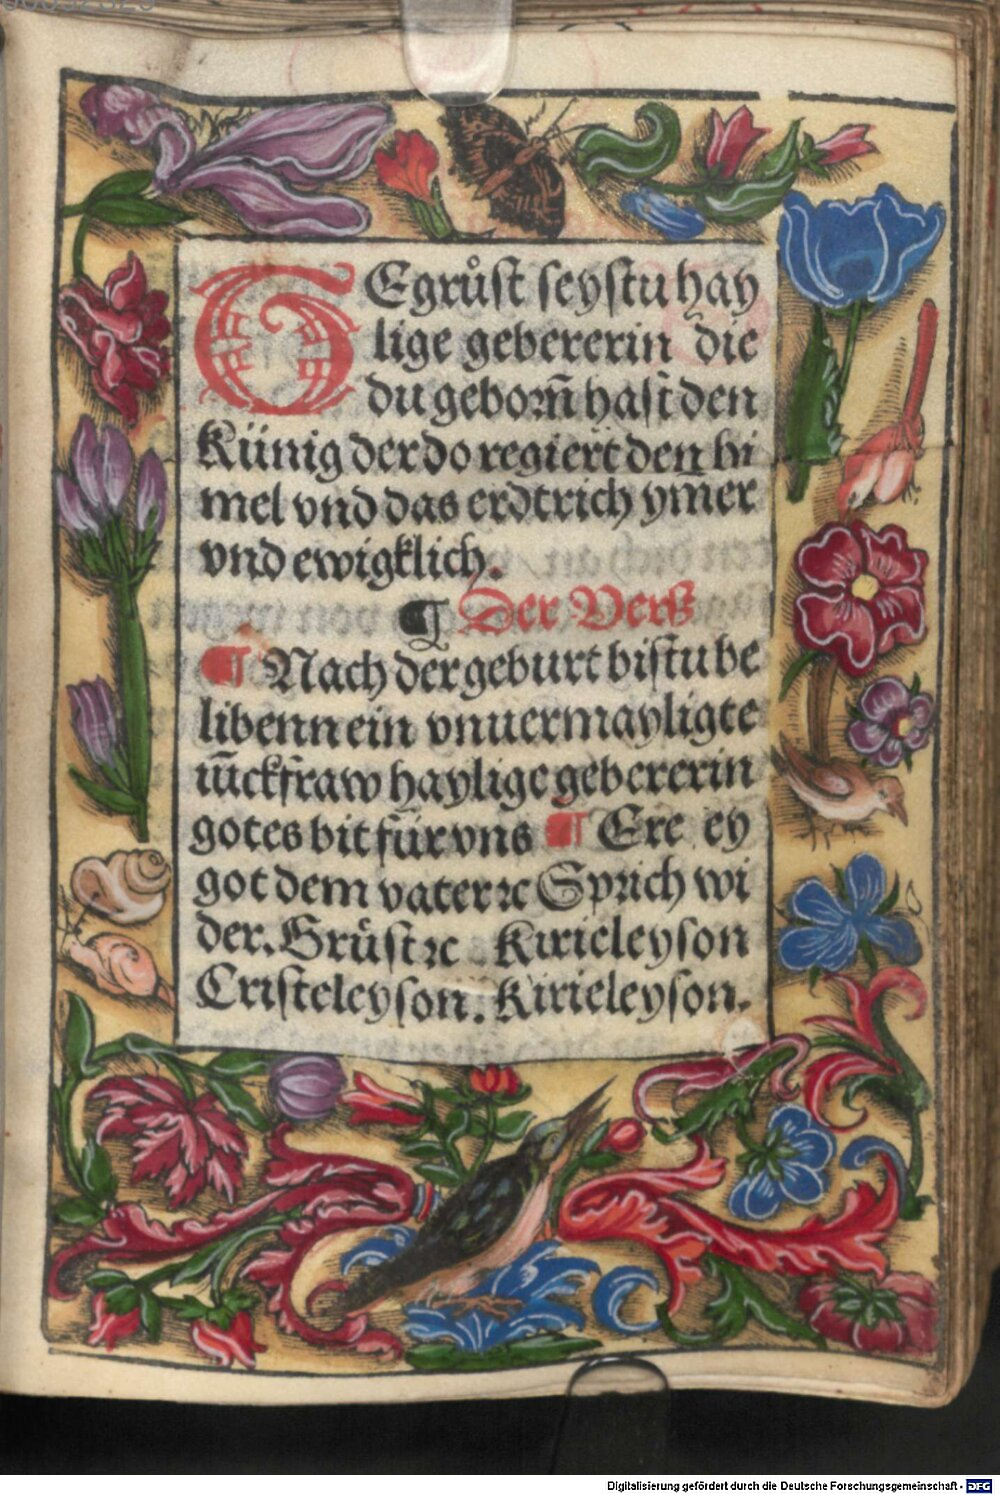 GEgrůſt ſeyſtu hay
lige gebererin die
du geborn̄ haſt den
Künig der do regiert den hi
mel vnd das erdtrich ym̄er
vnd ewigklich.
¶ Der Verß
¶ Nach der geburt biſtu be
libenn ein vnuermayligte
iūckfraw haylige gebererin
gotes bit für vns ¶ Ere ey
got dem vater ꝛc Sprich wi
der. Grüſt ꝛc Kirieleyſon
Criſteleyſon. Kirieleyſon.
Digitalisierung gefördert durch die Deutsche Forschungsgemeinschaft - DFG